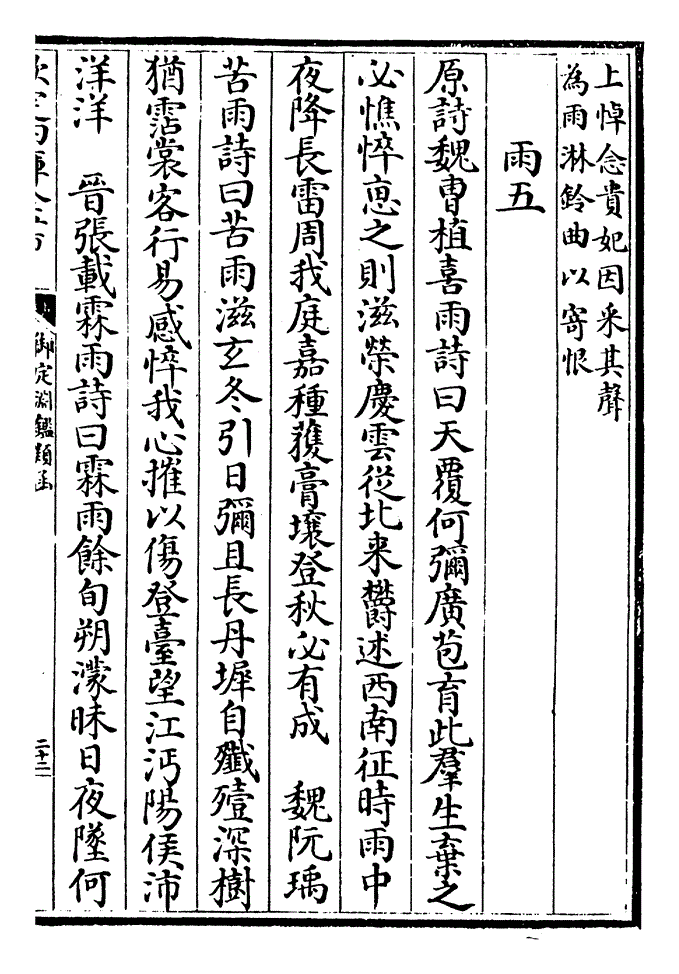 上悼念貴妃因采其聲
為雨淋鈴曲以寄恨
雨五
原詩魏曹植喜雨詩曰天覆何彌廣苞育此羣生棄之
必憔悴恵之則滋榮慶雲從北来欝述西南征時雨中
夜降長雷周我庭嘉種獲膏壤登秋必有成　魏阮瑀
苦雨詩曰苦雨滋玄冬引日彌且長丹墀自殱殪深樹
猶霑裳客行易感悴我心摧以傷登臺望江沔陽侯沛
洋洋　晉張載霖雨詩曰霖雨餘旬朔濛昧日夜墜何
御定淵鑑類函
二十二